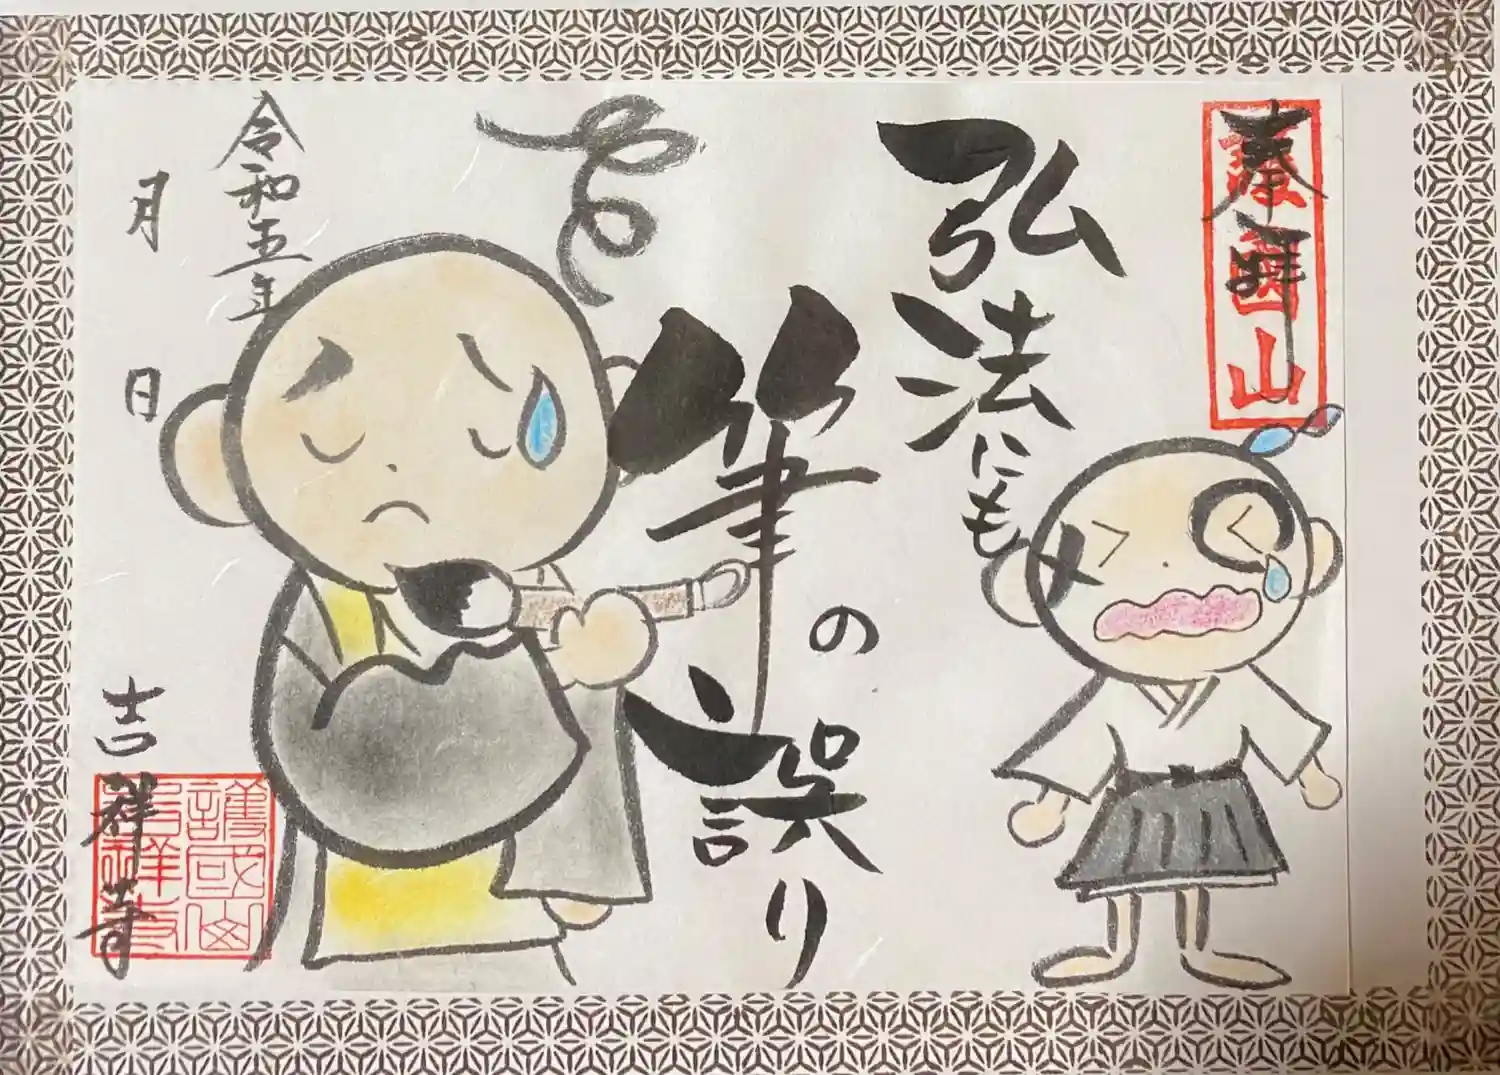 奉拝
護國山
弘法にも
筆の誤り
令和五年
月
日
吉祥寺
護國山
吉祥寺